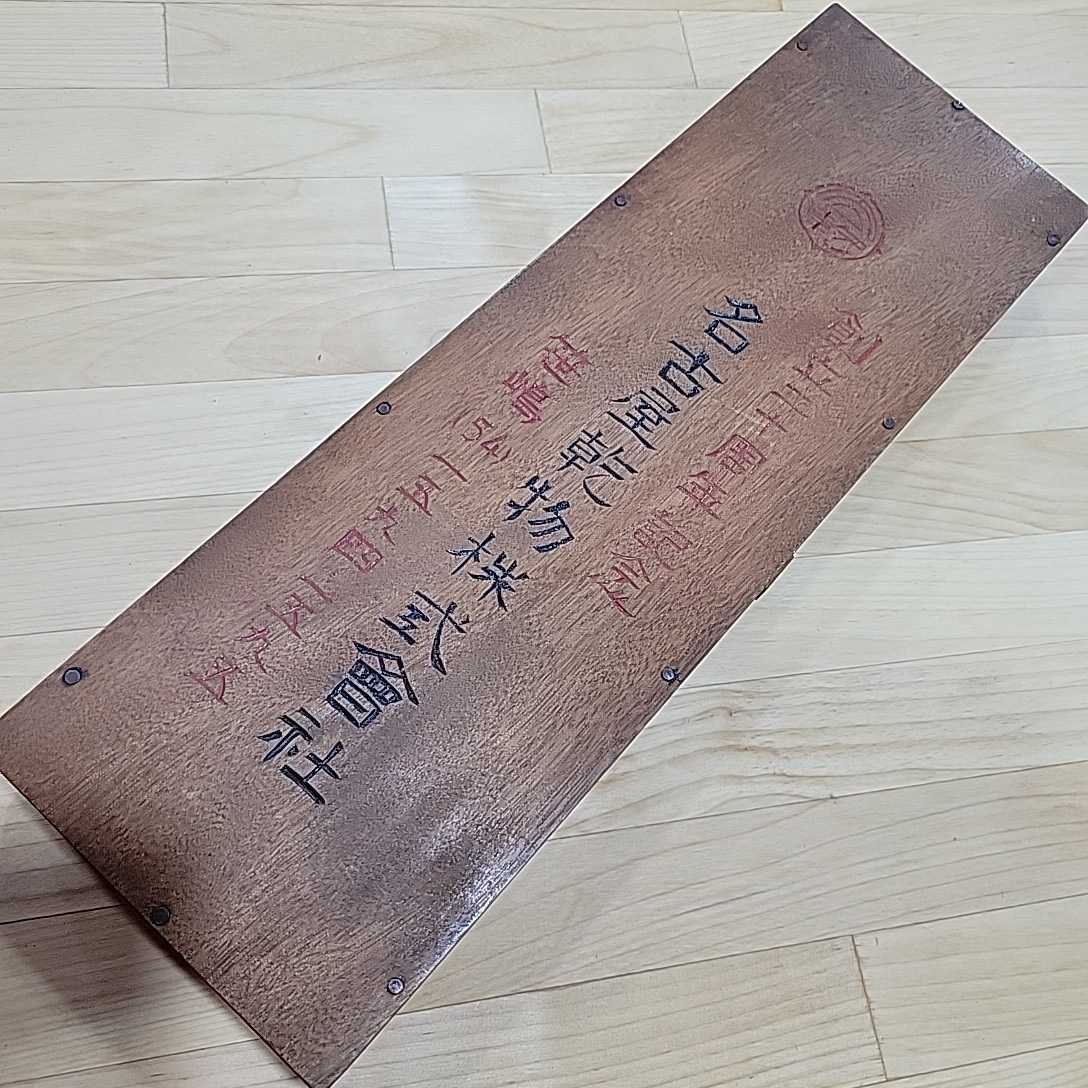 創立三十周年記念
名古屋乾物株式會社
電話(54)一五九四一五九五